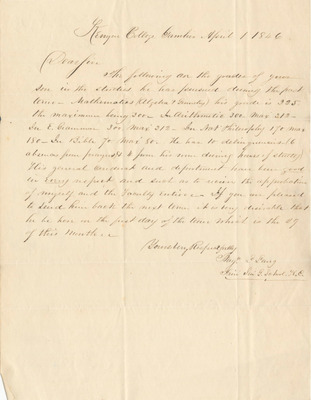 Kenyon College Gambier April 1 1846
Dear Sir
The following are the grades of your
son in the studies he has pursued during the past
term - Mathematics (Algebra & Geometry) his grade is 225
the maximum being 300 - In Arithmetic 200 Max 212 -
In E. Grammar 200 Max 212 - In Nat. Philosophy 170 Max
180 - In Bible 70 Max 80. He has 20 delinquencies (16
absences from prayers & 4 from his room during hours of study)
His general conduct and deportment have been good
in every respect and such as to receive the approbation
of myself and the Faculty entire - If you are pleased
to send him back the next term it is very desirable that
he be here on the first day of the term which is the 29
of this Month
Yours very Respectfully